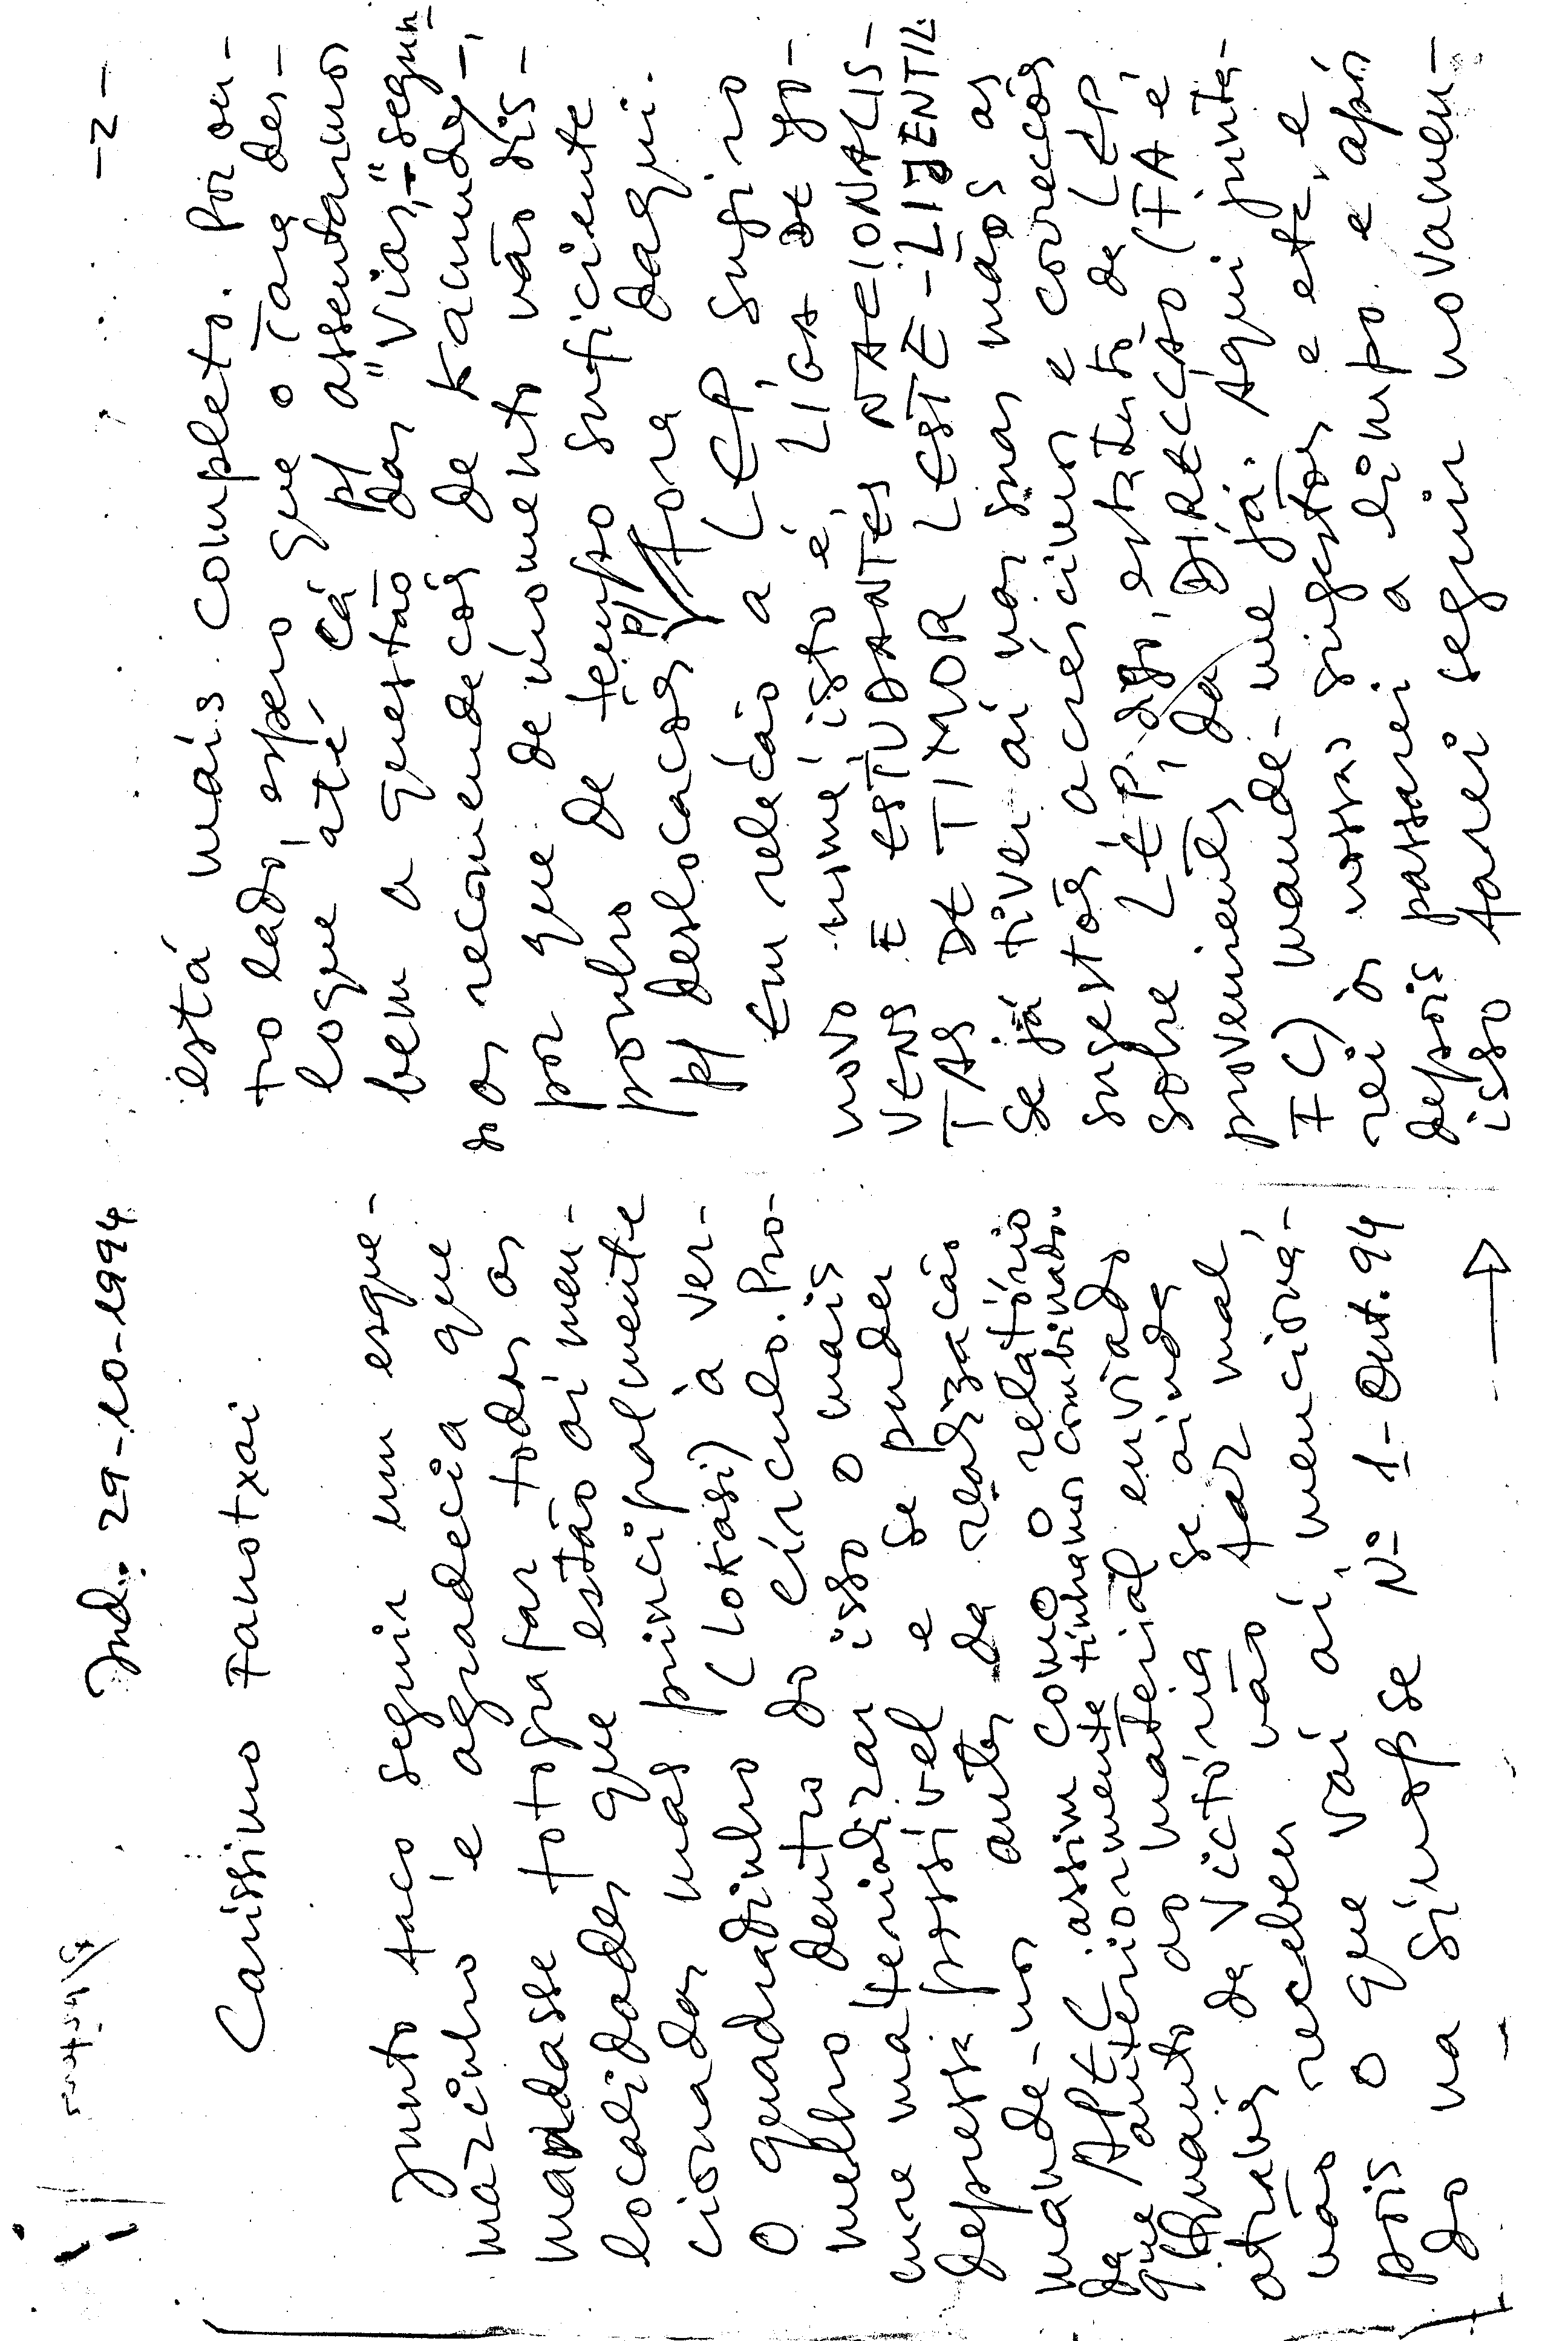 Ind. 29-10-1994
Caríssimo Fanotxai
Junto faço seguir um esque-
mazinho e agradecia que
mandasse fotografar todos os
localidades que estão aí men-
cionadas mas principalmente
O quadradinho (Lokasi) à ver-
melho dentro do círculo. Pro-
cure materializar isso o mais
depressa possível e se puder
mande-nos antes da realização
da APEC assim como o relatório
que anteriormente tínhamos combinado.
Quanto ao material enviado
através da Victória se ainda
não receber não faz mal,
pois o que vai aí, mencioná-
do na Sinopse Nº 1-Out.94
-2-
está mais completo. Por ou-
tro lado, espero que o Tara des-
loque até cá p/ assentarmos
bem a questão das "Vias", segun
do recomendações de Kaimudy,
por que de momento vão dis-
ponho de tempo suficiente
p/ deslocações p/ fora daqui.
Em relação a LEP sugiro
novo nome, isto é, LIGA DE JO-
VENS E ESTUDANTES NACIONALIS-
TAS DE TIMOR LESTE - LIJENTIL.
Se já tiver aí nas suas mãos as
sugestões, acréscimos e correcções
sobre LEP, digo, estatuto da LEP
provenientes da DIRECÇÃO (FA e
FC) mande-me já. Aqui junta-
rei às nossas sugestões e etc, e
depois passarei a limpo e após
isso farei seguir novamen-